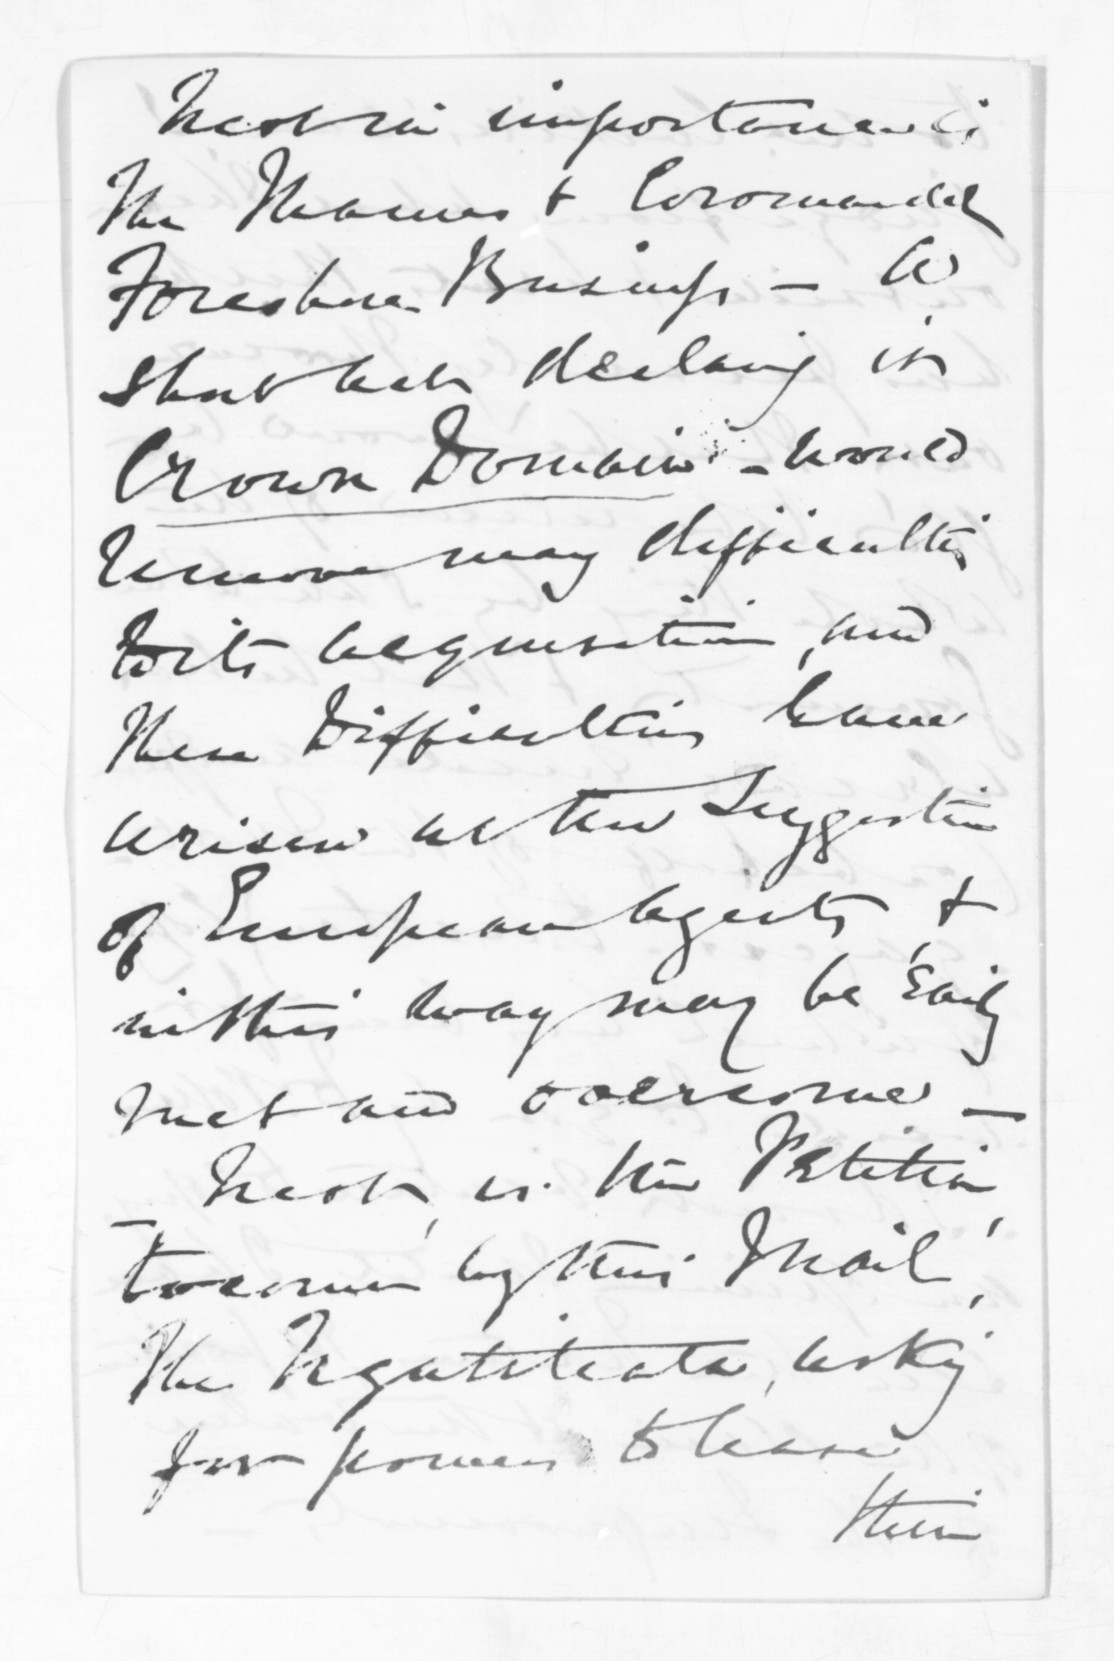 Next in importance is
the Thames & Coromandel
Foreshore Business - A
short act declaring it
Crown Domain - would
remove many difficulties
to its acquisition, and
these Difficulties have
arisen at the Suggestion
of European agents, &
in this way may be Easily
met and overcome -
Next, is the Petition,
to come by this Mail,
the Ngatiteata, asking
for power to lease
their